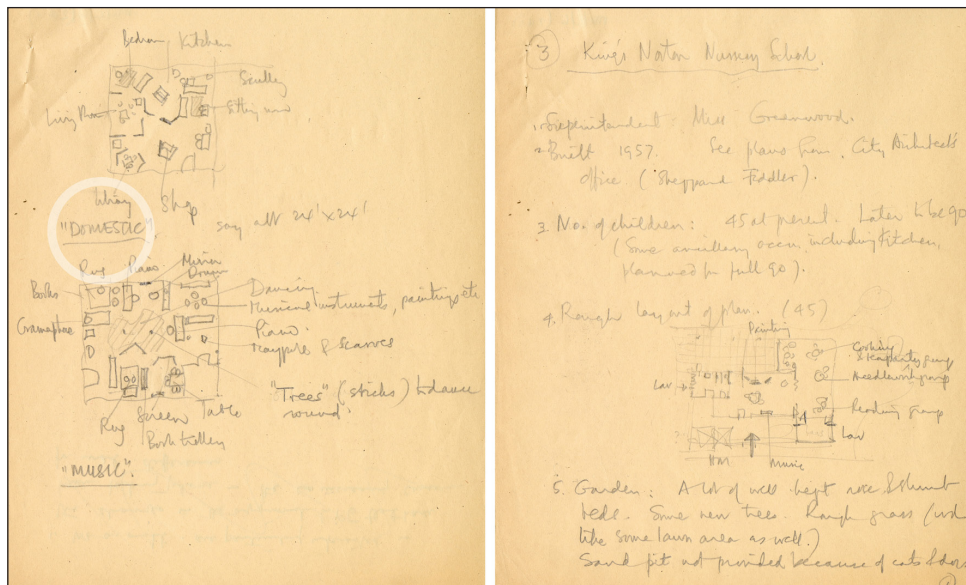 Bedroom Kitchen
Scullery
Living Room
Sitting room
Library Shop
"DOMESTIC" say all 24' x 24'
Rug Piano Mirror
Drum
Books
Gramophone
Dancing
Musical instruments, paintings etc
Piano.
Maypoles & scarves
"Trees" (sticks) to dance
round.
Rug Screen Table
Book trolley
"MUSIC".
3 King's Norton Nursery School.
1. Superintendent: Miss Greenwood.
2. Built 1957. See plans from City Architect's
Office (Sheppard Fiddler).
3. No. of children: 45 at present. Later to be 90
(Some ancillary accom. including Kitchen,
planned for full 90).
4. Rough layout of plan. (45)
Painting
Cooking
& tea party group
Needlework group
Lav
Reading group
Lav
Hall Music
5. Garden: A lot of well kept rose & shrub
beds. Some new trees. Rough grass (wd
like some lawn area as well.)
Sand pit not provided because of cats & dogs